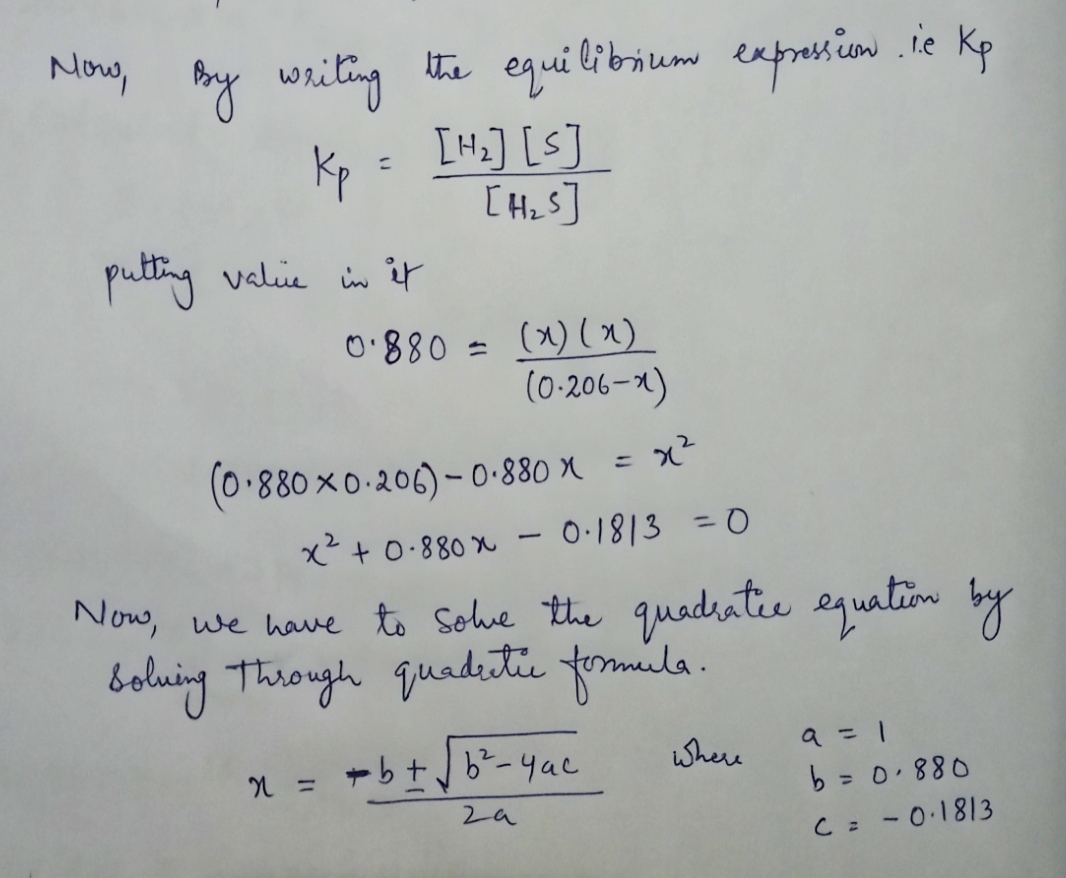 Now, By writing the equilibrium expression. i.e Kp
Kp = [H₂] [S] / [H₂S]
putting value in it
0.880 = (x) (x) / (0.206-x)
(0.880 × 0.206) - 0.880 x = x²
x² + 0.880x - 0.1813 = 0
Now, we have to solve the quadratic equation by
solving through quadratic formula.
x = -b ± √b²-4ac / 2a where a = 1
b = 0.880
c = -0.1813